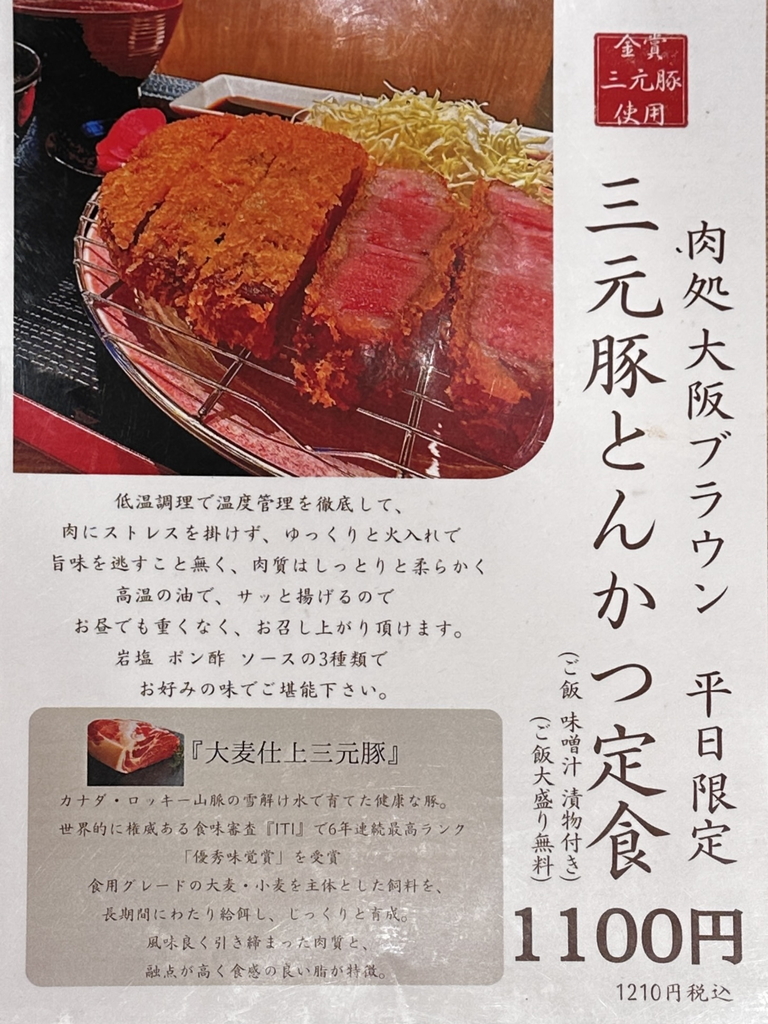 金賞
三元豚
使用
肉処 大阪ブラウン 平日限定
三元豚とんかつ定食
(ご飯 味噌汁 漬物付き)
(ご飯大盛り無料)
1100円
1210円税込
低温調理で温度管理を徹底して、
肉にストレスを掛けず、ゆっくりと火入れで
旨味を逃すこと無く、肉質はしっとりと柔らかく
高温の油で、サッと揚げるので
お昼でも重くなく、お召し上がり頂けます。
岩塩 ポン酢 ソースの3種類で
お好みの味でご堪能下さい。
『大麦仕上三元豚』
カナダ・ロッキー山脈の雪解け水で育てた健康な豚。
世界的に権威ある食味審査『ITI』で6年連続最高ランク
「優秀味覚賞」を受賞
食用グレードの大麦・小麦を主体とした飼料を、
長期間にわたり給餌し、じっくりと育成。
風味良く引き締まった肉質と、
融点が高く食感の良い脂が特徴。